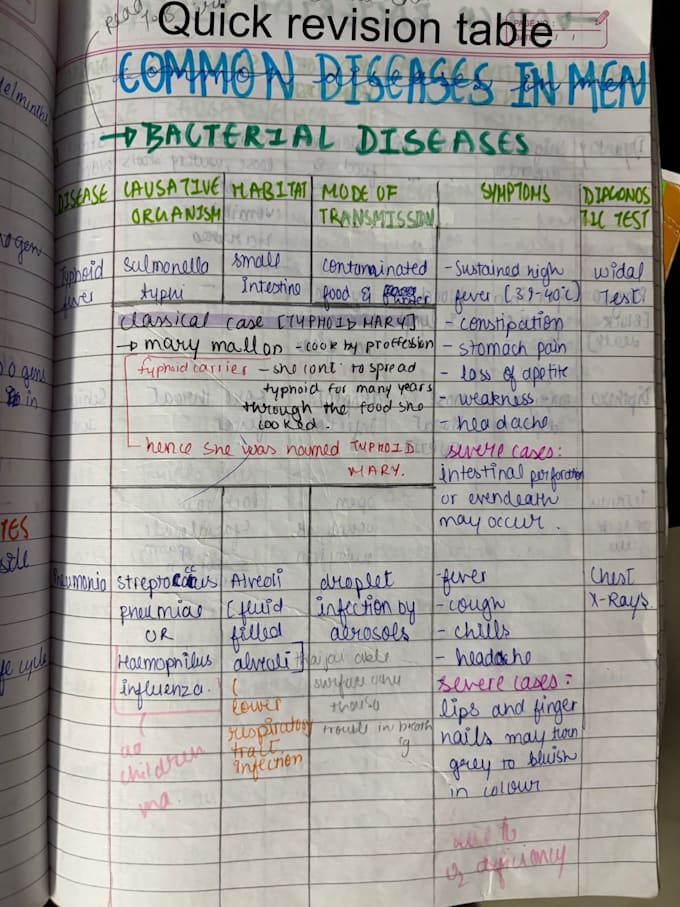 Quick revision table
PAGE NO.
COMMON DISEASES IN MEN
→ BACTERIAL DISEASES
DISEASE CAUSATIVE ORGANISM HABITAT MODE OF TRANSMISSION SYMPTOMS DIAGONOSTIC TEST
Typhoid fever
Salmonella
typhi
small
Intestine
contaminated
food & water
- Sustained high
fever [39-40°c]
- constipation
- stomach pain
- loss of apetite
- weakness
- headache
severe cases:
intestinal perforation
or even death
may occur.
widal
Test
classical case [TYPHOID MARY]
→ mary mallon - cook by proffession
typhoid carrier - she cont. to spread
typhoid for many years
through the food she
cooked.
hence she was named TYPHOID
MARY.
Pneumonia
Streptococcus
pneumiae
OR
Haemophilus
influenza.
children
Alveoli
[fluid
filled
alveoli]
lower
respiratory
trait
infection
droplet
infection by
aerosols
surface
trouble in breath
ig
- fever
- cough
- chills
- headache
severe cases:
lips and finger
nails may turn
grey to bluish
in colour
O2 deficiancy
Chest
X-Rays.
elminths
ogens
in
TES
cycle